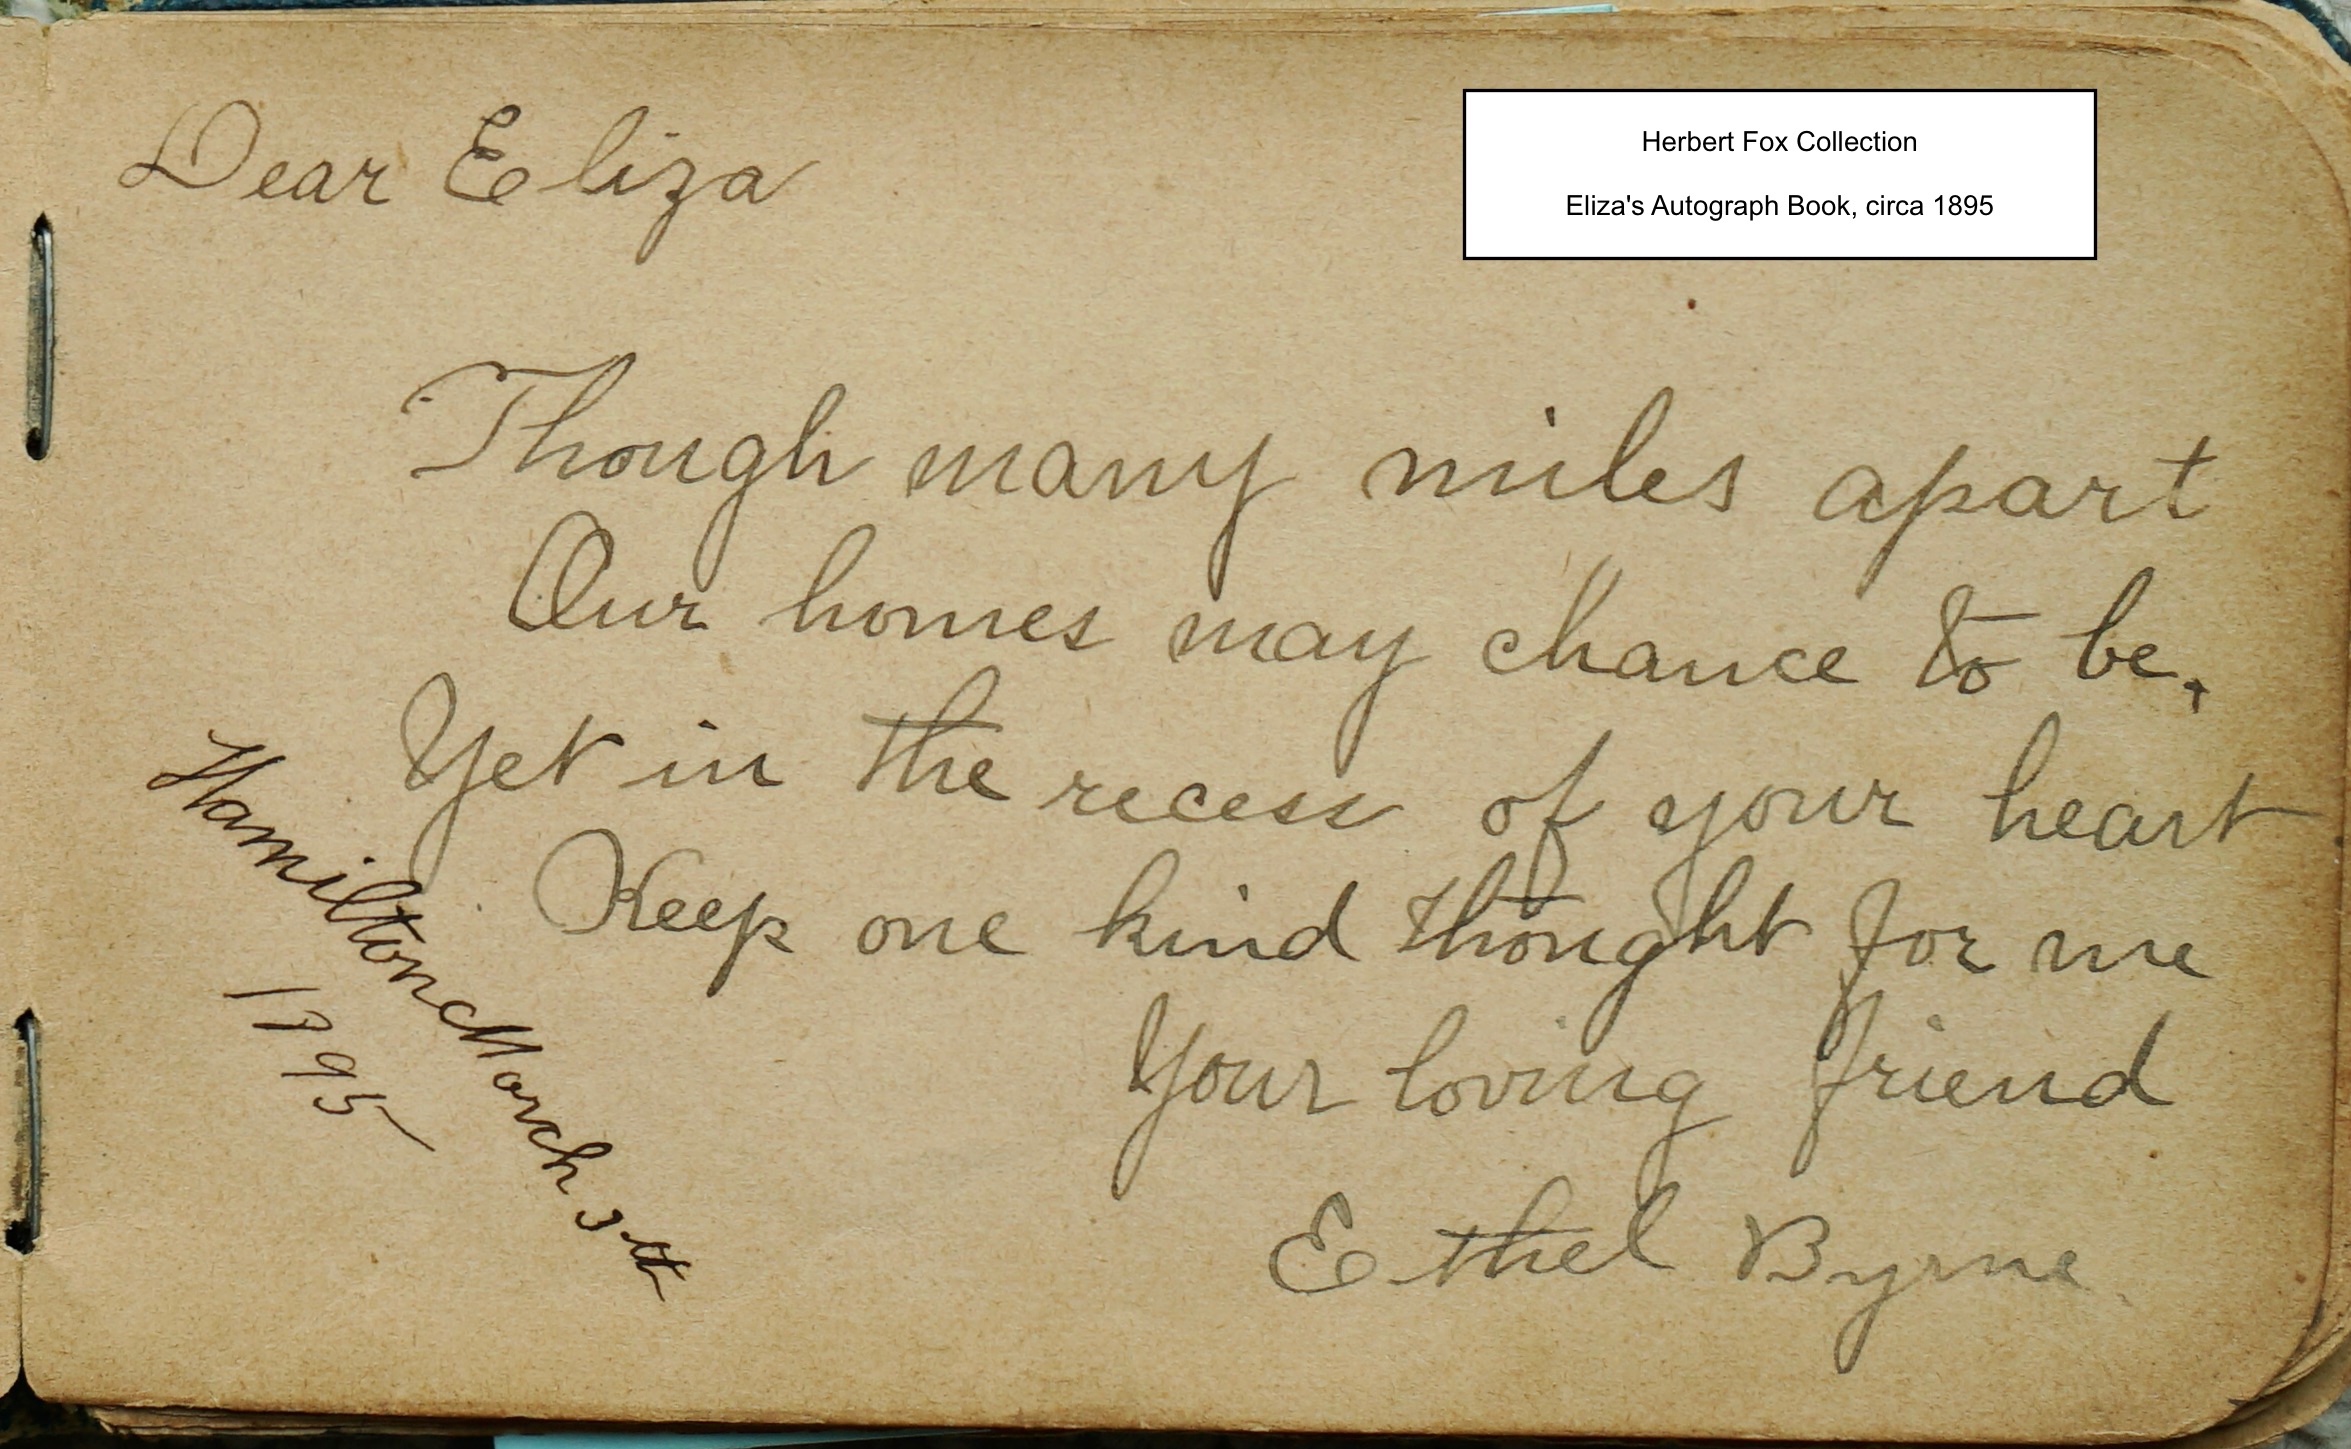 Dear Eliza
Herbert Fox Collection
Eliza's Autograph Book, circa 1895
Though many miles apart
Our homes may chance to be,
Yet in the recess of your heart
Keep one kind thought for me
Your loving friend
Ethel Byrne
Hamilton March 3th
1895